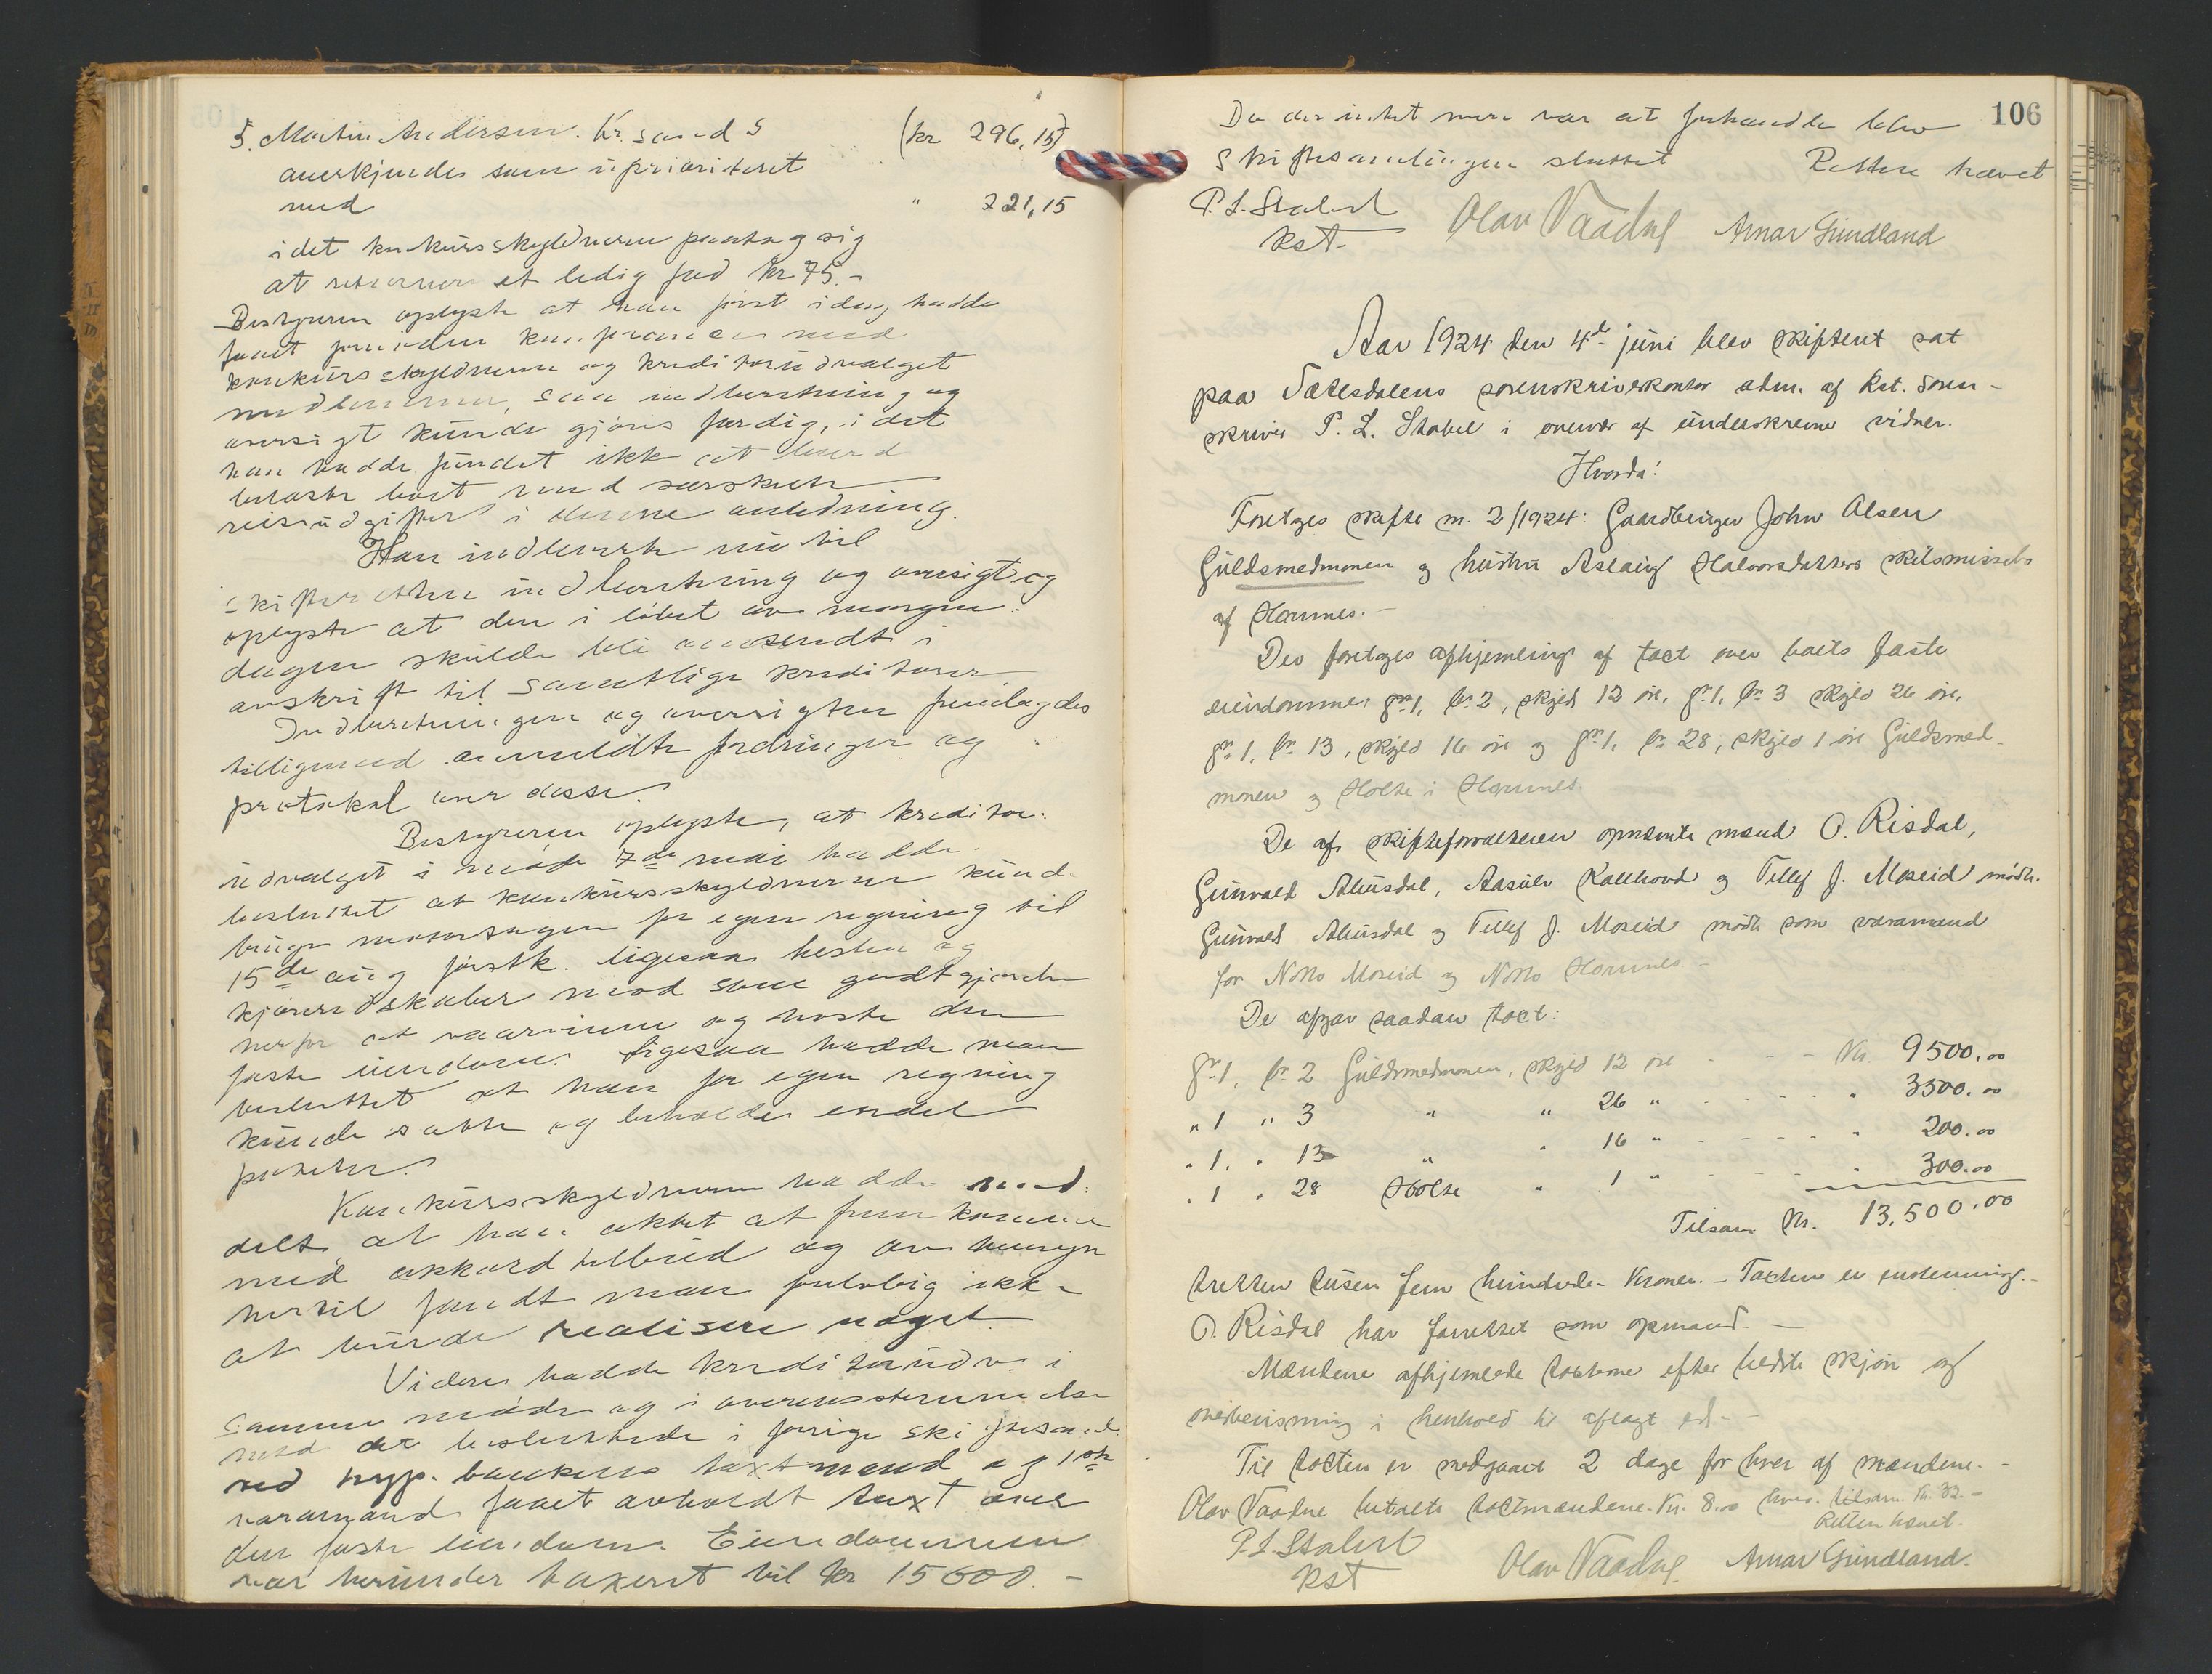 5. Martin Andersen. Kr.sand S (kr 296,15)
anerkjendes som uprioritert
med " 221,15
idet konkursskyldneren paatog sig
at returnere et ledig fad kr 75.-
Bestyreren oplyste at han først idag hadde
faaet fornøden konferance med
konkursskyldneren og kreditorudvalget
medlemmer, saa indberetning og
oversigt kunde gjøres færdig, idet
han hadde fundet ikke at burde
belaste boet med særskilte
reiseudgifter i denne anledning.
Han indleverte nu til
skifteretten indberetning og oversigt og
oplyste at den i løbet av morgen-
dagen skulde bli avsendt i
avskrift til samtlige kreditorer
Indberetningen og oversigten fremlagdes
tilligemed anmeldte fordringer og
protokol over disse.
Bestyreren oplyste, at kreditor-
udvalget i møde 7de mai hadde
besluttet at konkursskyldneren kunde
bruge motorsagen for egen regning til
15de aug førstk. ligesaa hesten og
kjøreredskaber mod som godtgjørelse
herfor at vaarvinne og høste den
faste eiendom. Ligesaa hadde man
besluttet at han for egen regning
kunde sætte og beholde endel
poteter.
Konkursskyldneren hadde med-
delt, at han aktet at fremkomme
med akkordtilbud og av hensyn
hertil fandt man foreløbig ikke
at burde realisere noget
Videre hadde kreditorudv. i
samme møde og i overensstemmelse
med det besluttede i forrige skiftesaml.
ved hyp. bankens takstmænd og 1 stk
varamand faaet avholdt taxt over
den faste eiendom. Eiendommen
var herunder taxeret til kr 15600.-
106
Da der intet mere var at forhandle blev
Skiftesamlingen sluttet Retten hævet
P. L. Stabel
kst. Olav Vaadne Arnar Grundland
Aar 1924 den 4de juni blev skifteret sat
paa Sætesdalens sorenskriverkontor adm. af kst. soren-
skriver P. L. Stabel i overvær af underskrevne vidner.
Hvorda!
Foretoges skifte nr. 2/1924: Gaardbruger John Olsen
Guldsmedmonen og hustru Aslaug Halvorsdatters skilsmissebo
af Hornnes.-
Der foretoges afhjemling af taxt over boets faste
eiendomme: gr. 1, br. 2, skyld 12 øre, gr. 1, br. 3 skyld 26 øre,
gr. 1, br. 13, skyld 16 øre og gr. 1, br. 28, skyld 1 øre Guldsmed-
monen og Holte i Hornnes.
De af skifteforvalteren opnævnte mænd O. Risdal,
Gunvald Ahusdal, Aasulv Kallhovd og Tellef J. Moseid mødte.
Gunvald Ahusdal og Tellef J. Moseid mødte som varamænd
for Notto Moseid og Notto Hornnes -
De afgav saadan taxt:
gr. 1, br. 2 Guldsmedmonen, skyld 12 øre - - - Kr. 9500.00
" 1 " 3 " " 26 " - - - - " 3500.00
" 1. " 13 " " 16 " - - - - " 200.00
" 1 " 28 Holte " 1 " - - - - " 300.00
Tilsam. Kr. 13.500.00
tretten tusen fem hundrede Kroner. - Taxten er enstemmig.-
O. Risdal har forrettet som opmand. -
Mændene afhjemlede taxterne efter bedste skjøn og
overbevisning i henhold til aflagt ed. -
Til taxten er medgaaet 2 dage for hver af mændene. -
Olav Vaadne betalte taxtmændene Kr. 8.00 hver. tilsam. Kr. 32.-
Retten hævet.
P. L. Stabel
kst Olav Vaadne. Arnar Grundland.